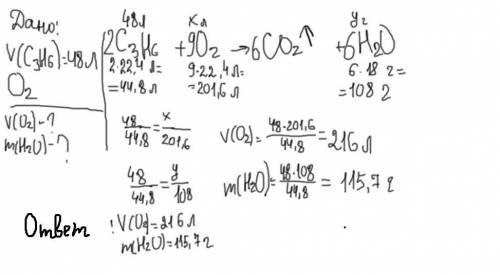 Дано:
V(C₃H₆)=48л
O₂
V(O₂)-?
m(H₂O)-?
48л xл yг
2C₃H₆ +9O₂ →6CO₂↑ +6H₂O
2·22,4л= 9·22,4л= 6·18г=
=44,8л =201,6л =108г
48/44,8=x/201,6 V(O₂)=48·201,6/44,8=216л
48/44,8=y/108 m(H₂O)=48·108/44,8= 115,7г
Ответ: V(O₂)=216л
m(H₂O)=115,7г